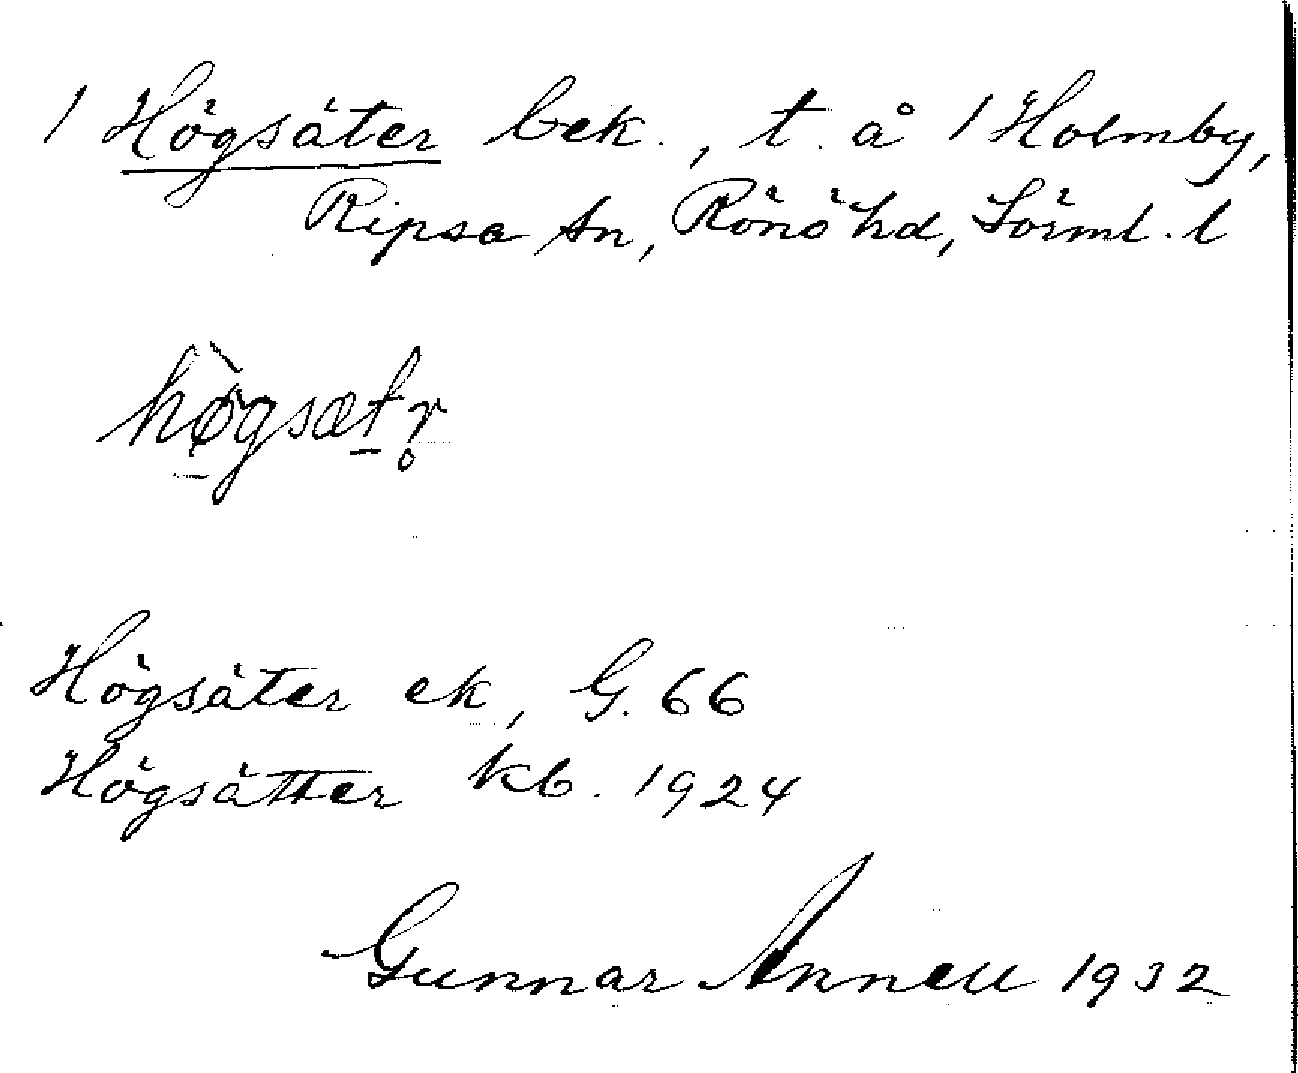 1 Högsäter bek., t. å 1 Holmby,
Ripsa sn, Rönö hd, Sörml. l
høgsætr̥
Högsäter ek, G. 66
Högsätter kb. 1924
Gunnar Annell 1932